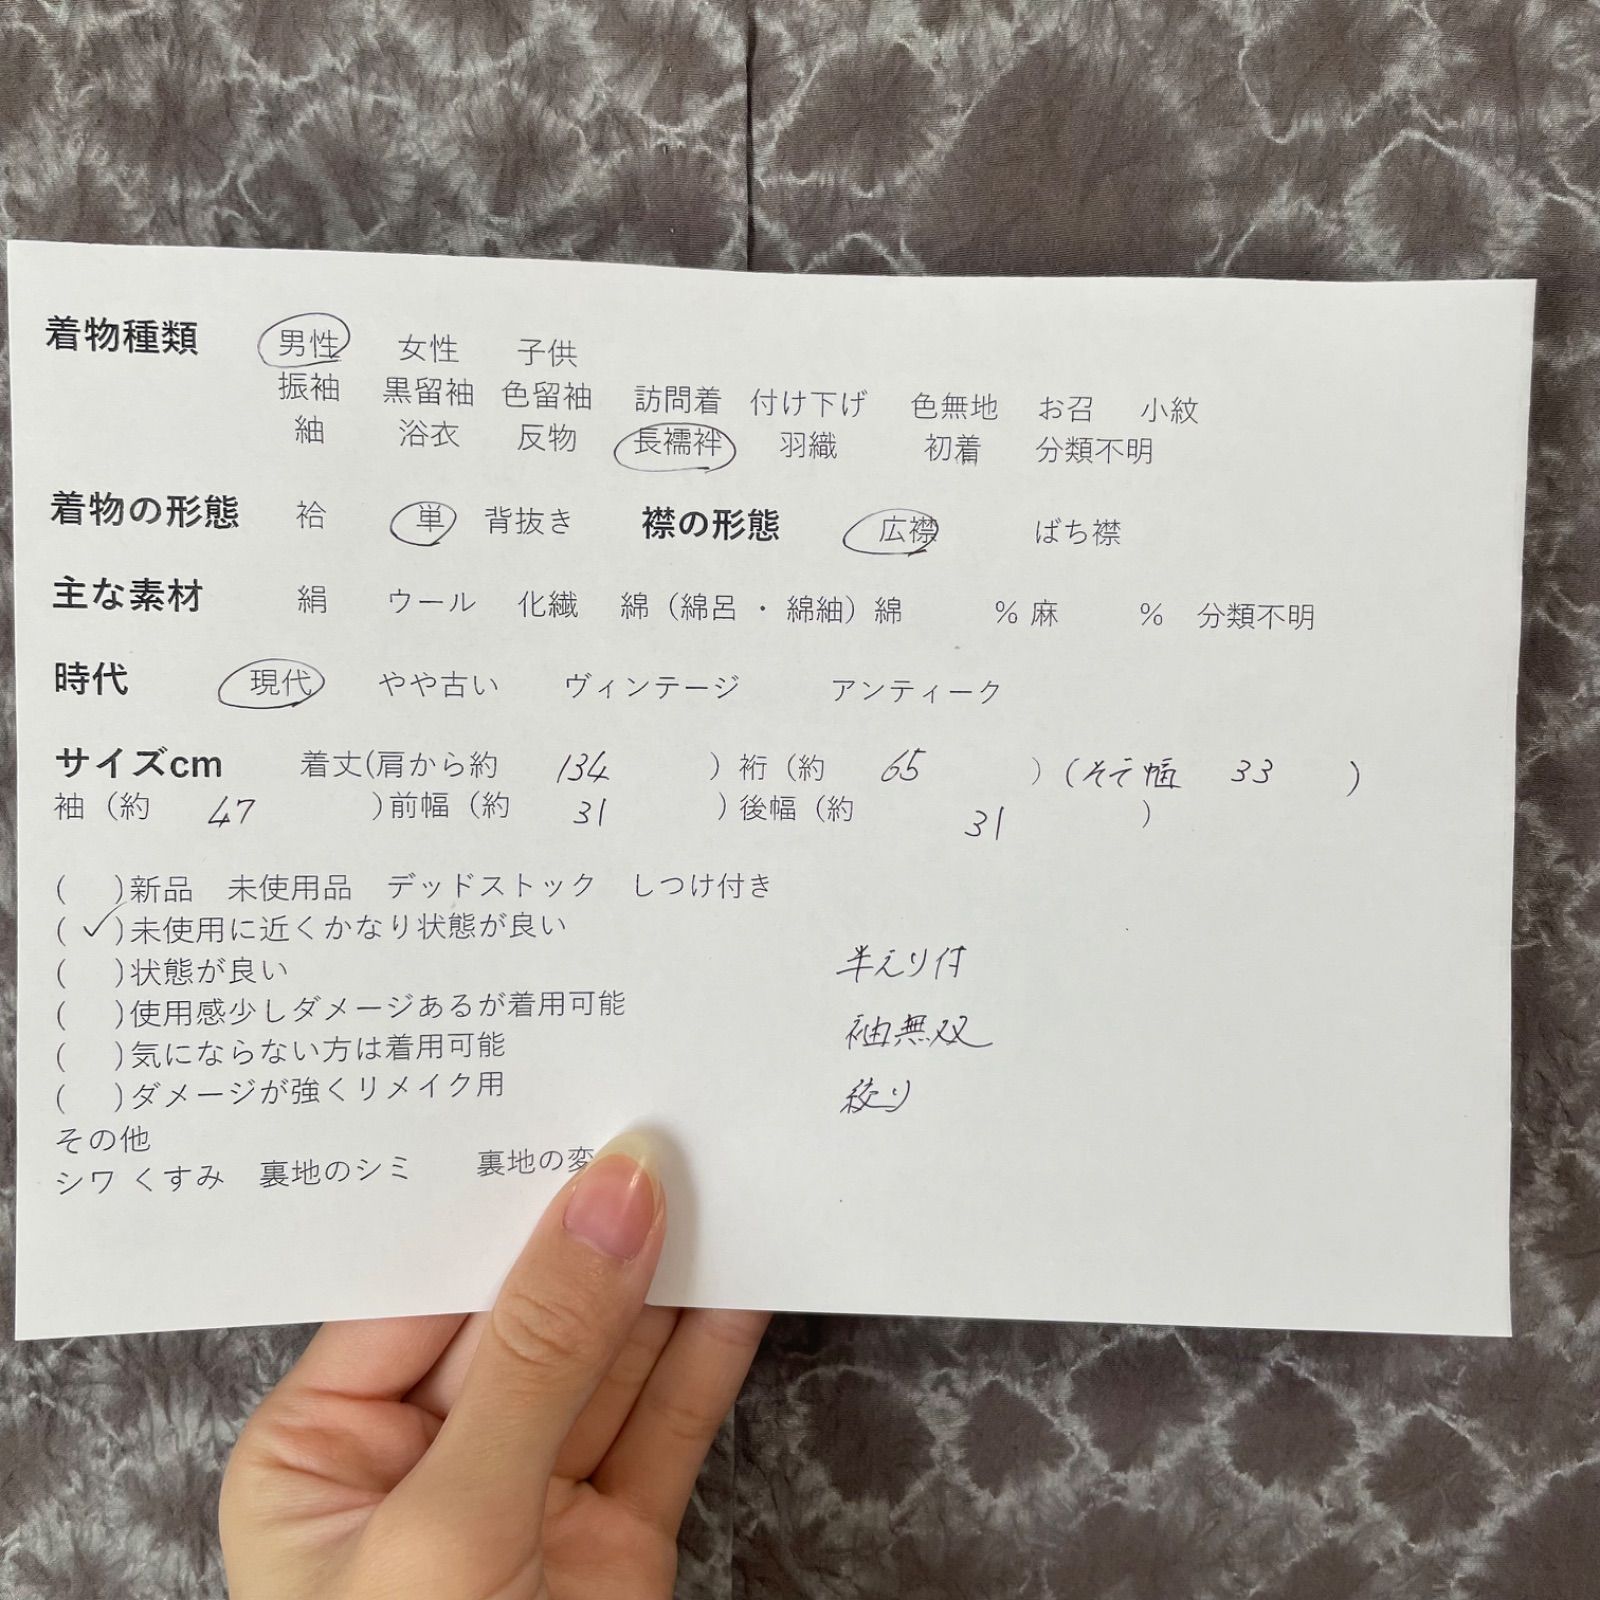 着物種類 男性 女性 子供
振袖 黒留袖 色留袖 訪問着 付け下げ 色無地 お召 小紋
紬 浴衣 反物 長襦袢 羽織 初着 分類不明
着物の形態 袷 単 背抜き 襟の形態 広襟 ばち襟
主な素材 絹 ウール 化繊 綿（綿呂・綿紬）綿 % 麻 % 分類不明
時代 現代 やや古い ヴィンテージ アンティーク
サイズcm 着丈(肩から約 134 ）裄（約 65 ）(そで幅 33 )
袖（約 47 )前幅（約 31 ）後幅（約 31 )
( )新品 未使用品 デッドストック しつけ付き
( ✓)未使用に近くかなり状態が良い
( )状態が良い
( )使用感少しダメージあるが着用可能
( )気にならない方は着用可能
( )ダメージが強くリメイク用
半えり付
袖無双
絞り
その他
シワ くすみ 裏地のシミ 裏地の変